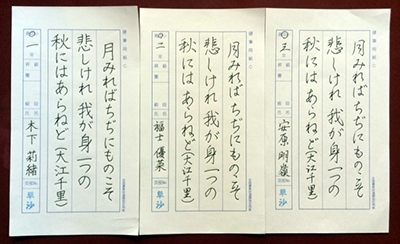 月みればちぢにものこそ
悲しけれ 我が身一つの
秋にはあらねど(大江千里)
一
木下 莉緒
月みればちぢにものこそ
悲しけれ 我が身一つの
秋にはあらねど(大江千里)
二
福士 優菜
月みればちぢにものこそ
悲しけれ 我が身一つの
秋にはあらねど(大江千里)
三
安原